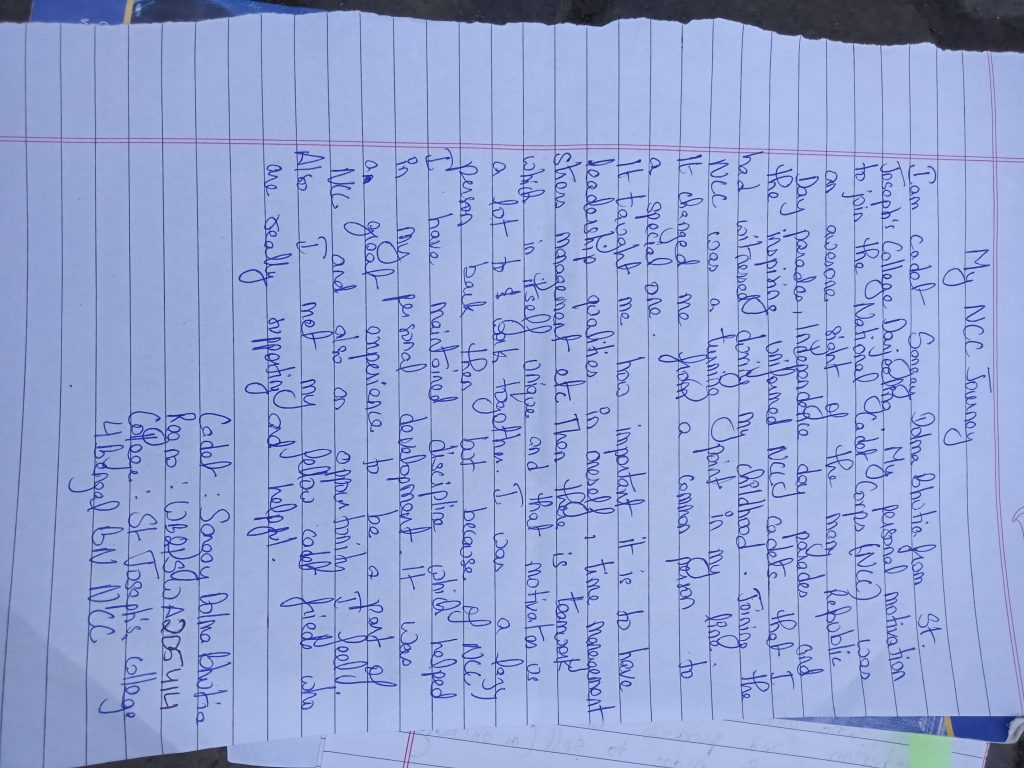 My NCC Journey
I am cadet Sonney Dolma Bhutia from St.
Joseph's College Darjeeling. My personal motivation
to join the National Cadet Corps (NCC) was
an awesome sight of the many Republic
Day parades, Independence day parades and
the inspiring uniformed NCC cadets that I
had witnessed during my childhood. Joining the
NCC was a turning Point in my life.
It changed me from a common person to
a special one.
It taught me how important it is to have
leadership qualities in oneself, time management
stress management etc. Then there is teamwork
which in itself unique and that motivates us
a lot to work together. I was a lazy
person back then but because of NCC,
I have maintained discipline which helped
in my personal development. It was
a great experience to be a part of
NCC and also an opportunity itself.
Also I met my fellow cadet friends who
are really supporting and helpful.
Cadet : Sonney Dolma Bhutia
Regno : WB21SWA205414
College : St Joseph's college
4 Bengal BN NCC